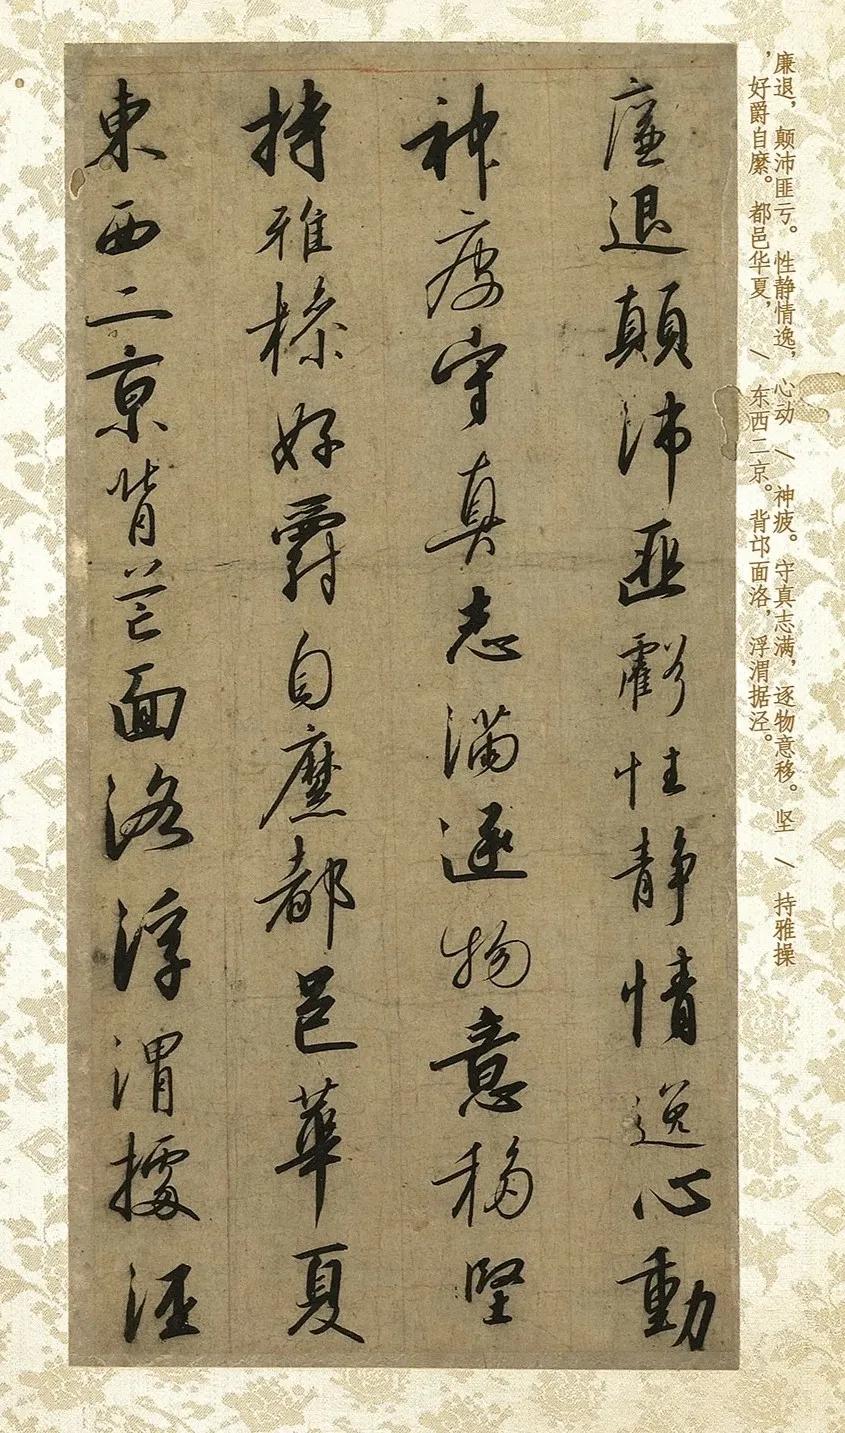 廉退，颠沛匪亏。性静情逸，心动 \ 神疲。守真志满，逐物意移。坚 \ 持雅操
，好爵自縻。都邑华夏， \ 东西二京。背邙面洛，浮渭据泾。
廉退顛沛匪虧性靜情逸心動
神疲守真志滿逐物意移堅
持雅操好爵自縻都邑華夏
東西二京背芒面洛浮渭據涇